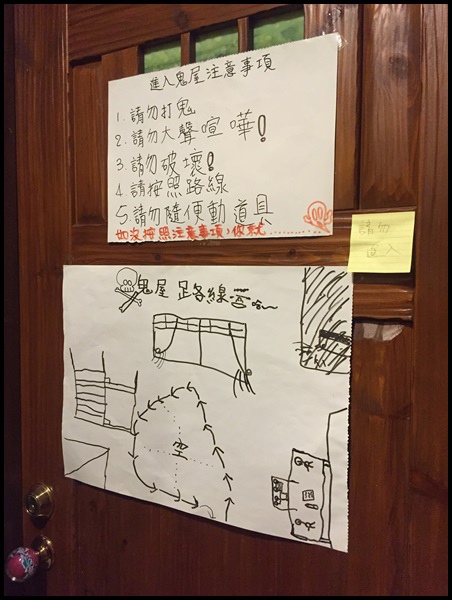 進入鬼屋注意事項
1.請勿打鬼
2.請勿大聲喧嘩!
3.請勿破壞!
4.請按照路線
5.請勿隨便動道具
如沒按照注意事項,你就............
請勿
進入
鬼屋 路線
空